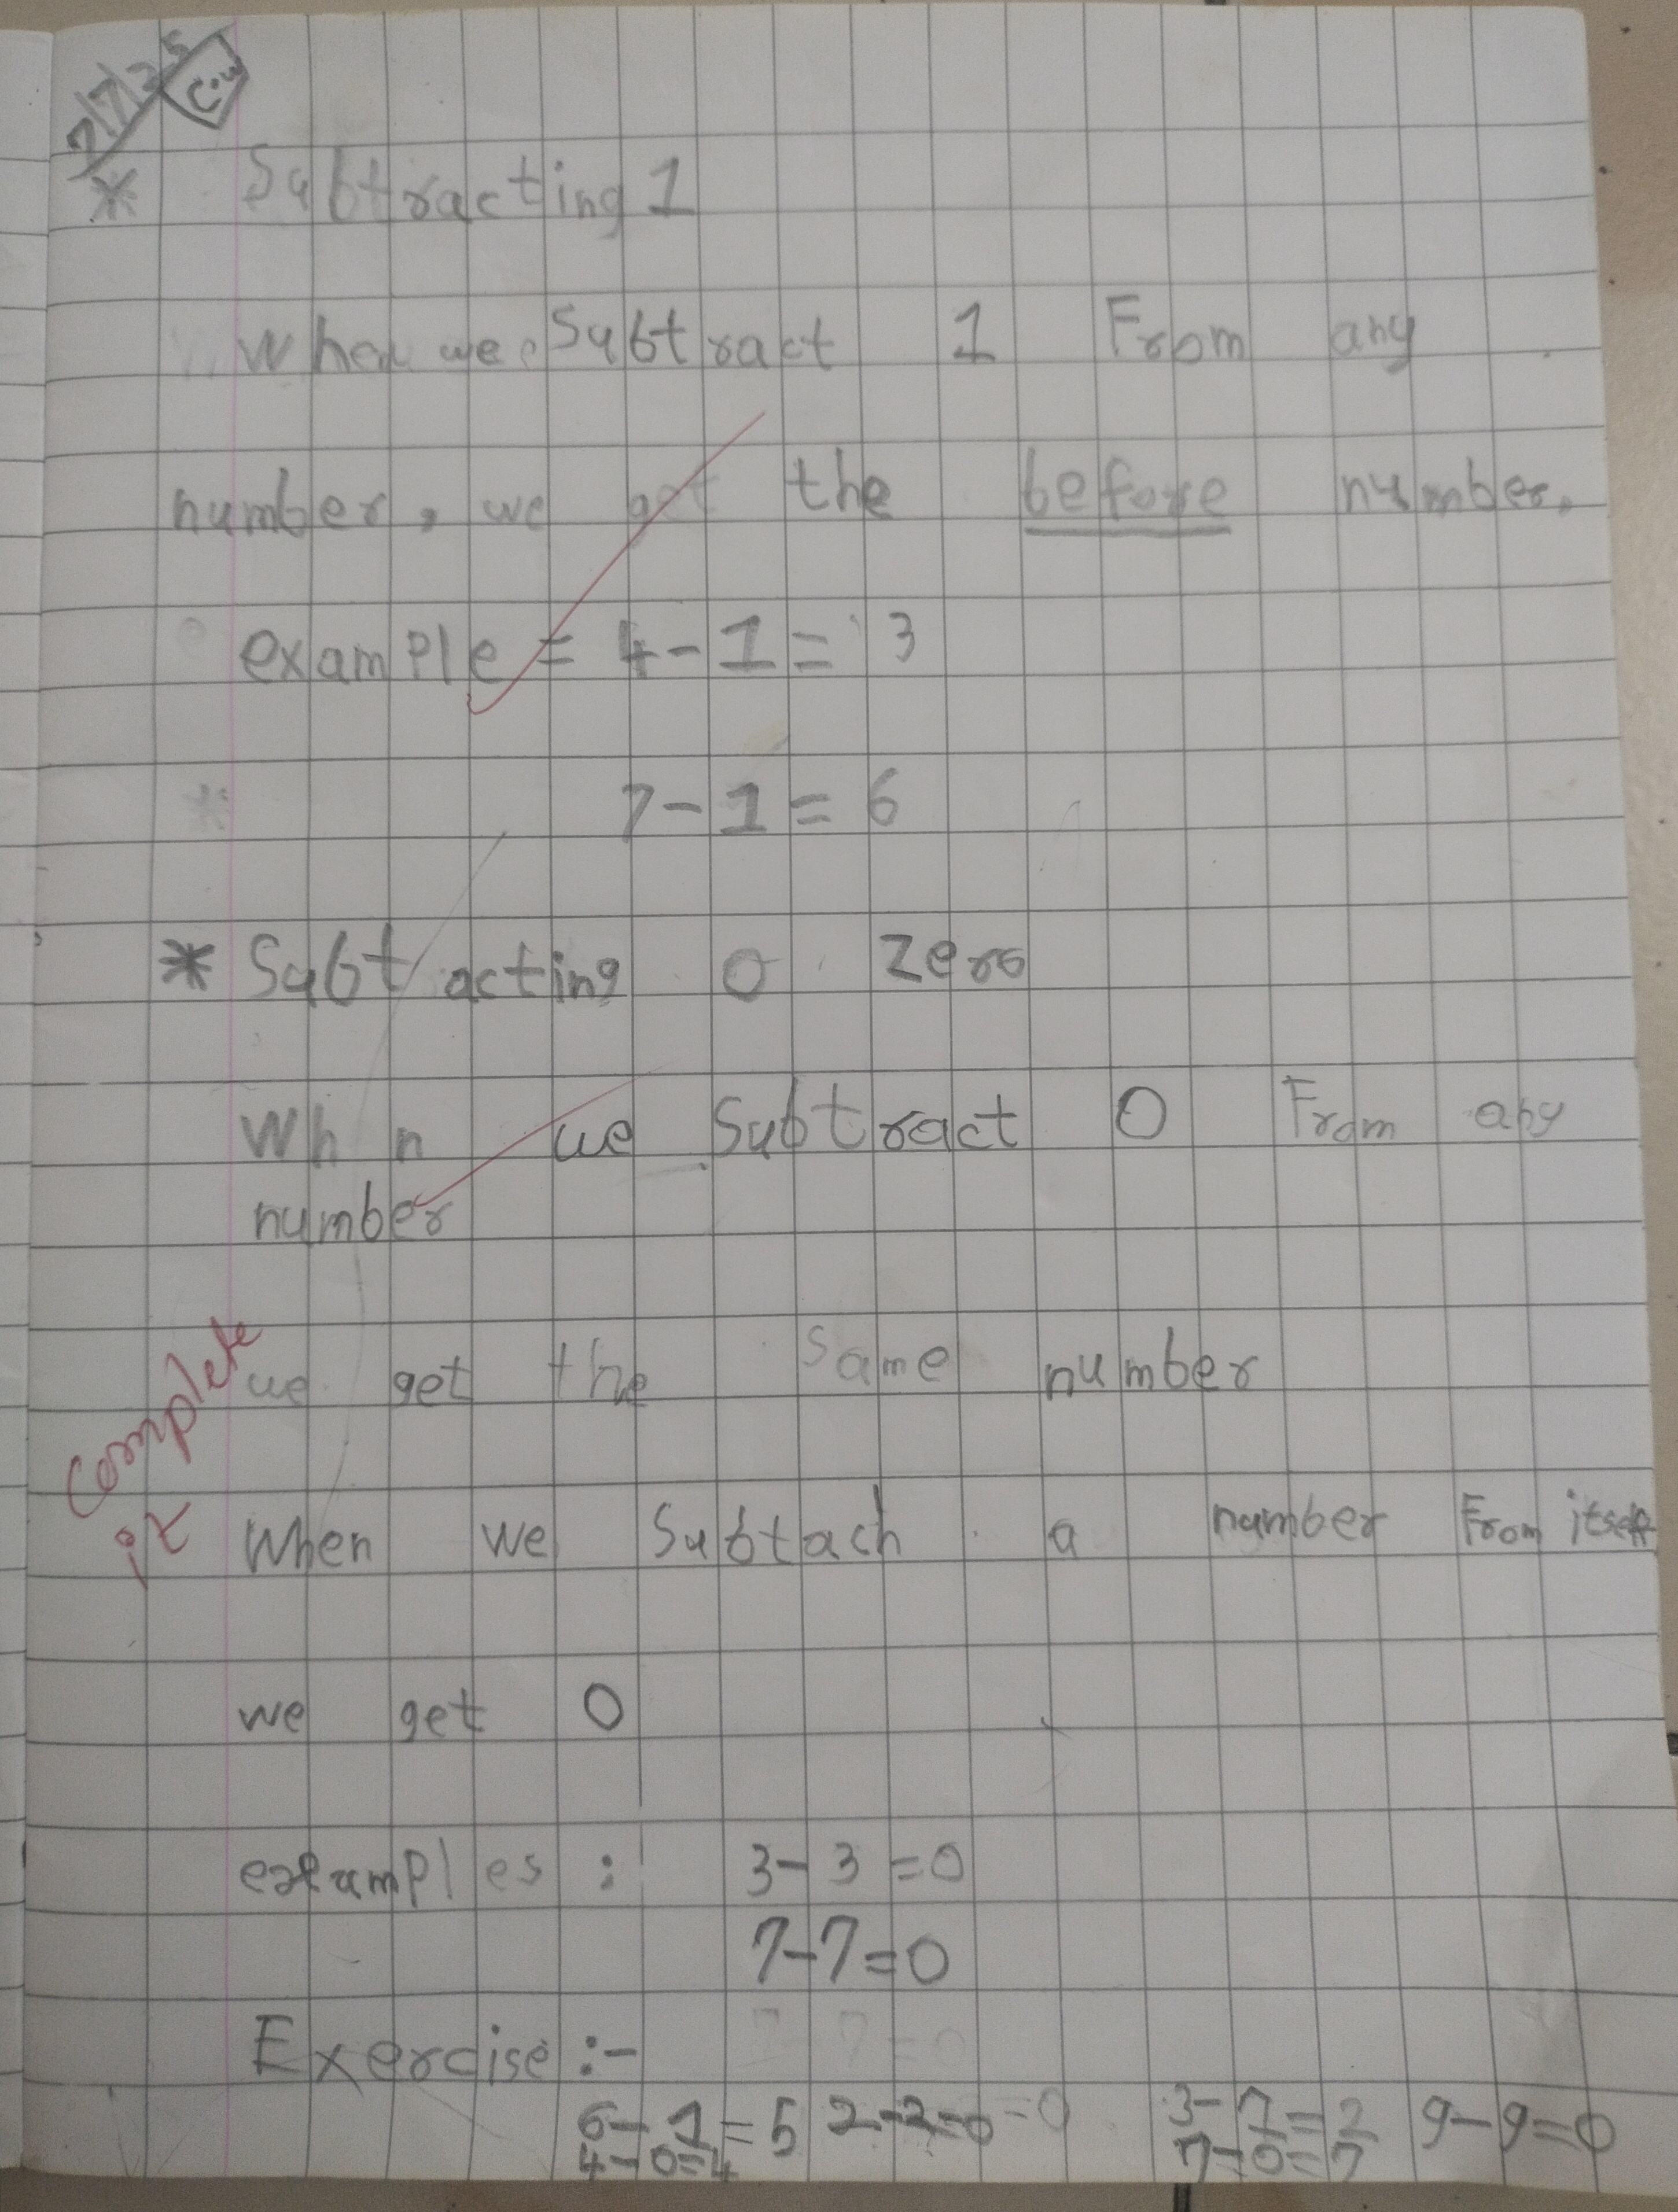 7/7/25 C.W
* Subtracting 1
When we Subtract 1 From any
number, we get the before number.
example = 4-1= 3
7-1= 6
* Subt acting 0 zero
Wh n we Subtract 0 From any
number
we get the Same number
Complete
it
When we Subtach a number From itself
we get 0
examples : 3-3=0
7-7=0
Exercise :-
6-1=5 2-2=0 =0 3-1=2 9-9=0
4-0=4 7-0=7